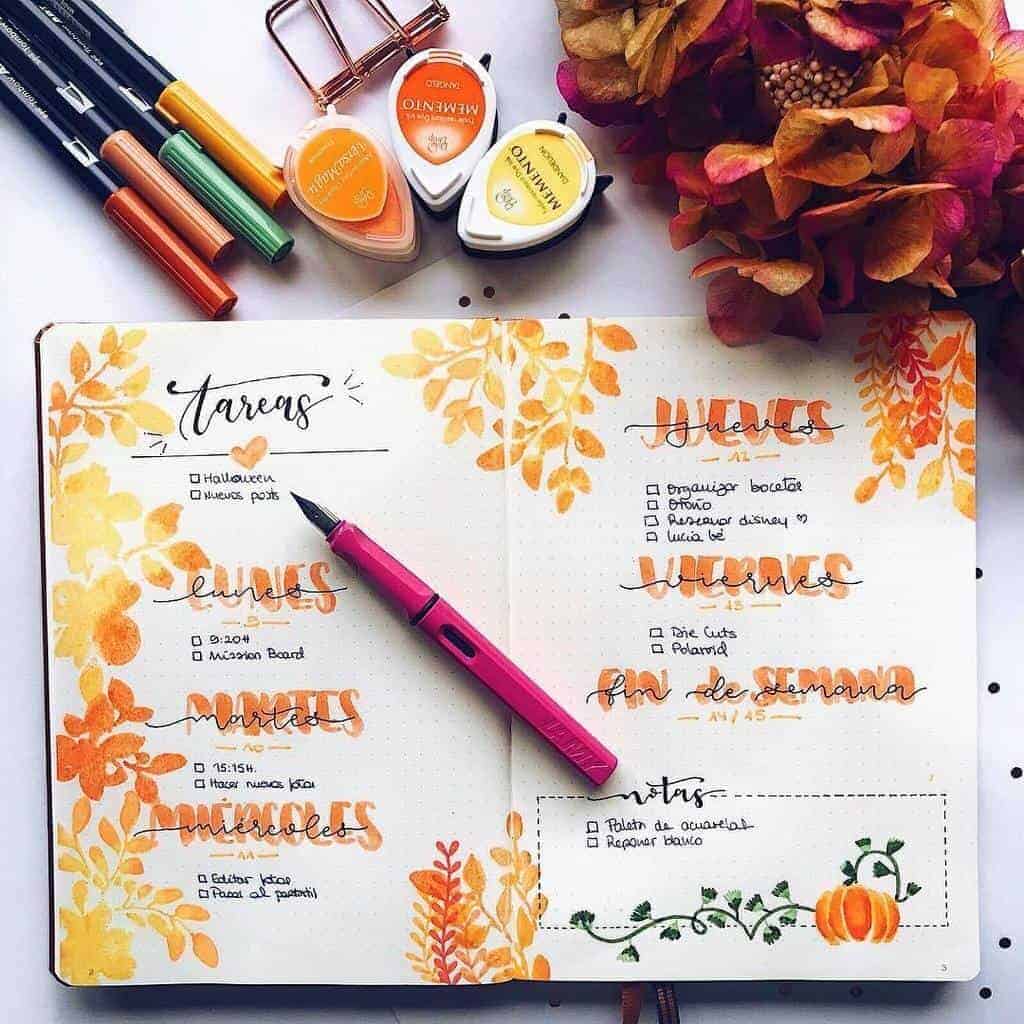 MEMENTO
DANGELO
VersaMagic
MEMENTO
DANDELION
tareas
Halloween
Nuevos posts
LUNES
lunes
9
9:20H
Mission Board
MARTES
martes
10
15:15H.
Hacer nuevas fotos
MIÉRCOLES
miércoles
11
Editar fotos
Pasar al portátil
2
JUEVES
jueves
12
Organizar bocetos
Otoño
Reservar disney ♡
Lucía bé
VIERNES
viernes
13
Die Cuts
Polaroid
FIN DE SEMANA
fin de semana
14/15
notas
Paleta de acuarelas
Reponer blanco
3
LAMY